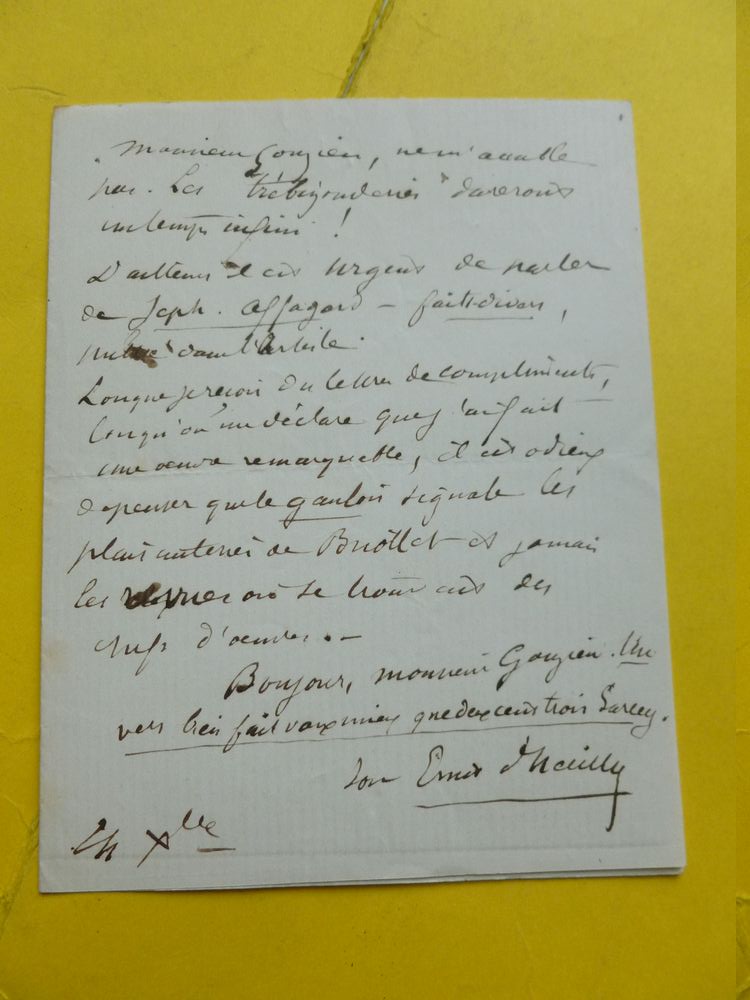 Monsieur Gouzien, ne m'accable
pas. Les "trébizonderies" dureront
un temps infini !
D'ailleurs il est urgent de parler
de Joseph. Affagard — faits divers,
publié dans l'Artiste.
Lorsque je reçois des lettres de compliments,
lorsqu'on me déclare que j'ai fait
une œuvre remarquable, il est odieux
de penser que le gaulois signale les
plaisanteries de Briollet et jamais
les revues où se trouvent des
chefs d'œuvre. —
Bonjour, monsieur Gouzien. Un
vers bien fait vaux mieux que deux cents trois Sarcey.
Ton Ernest d'Hervilly